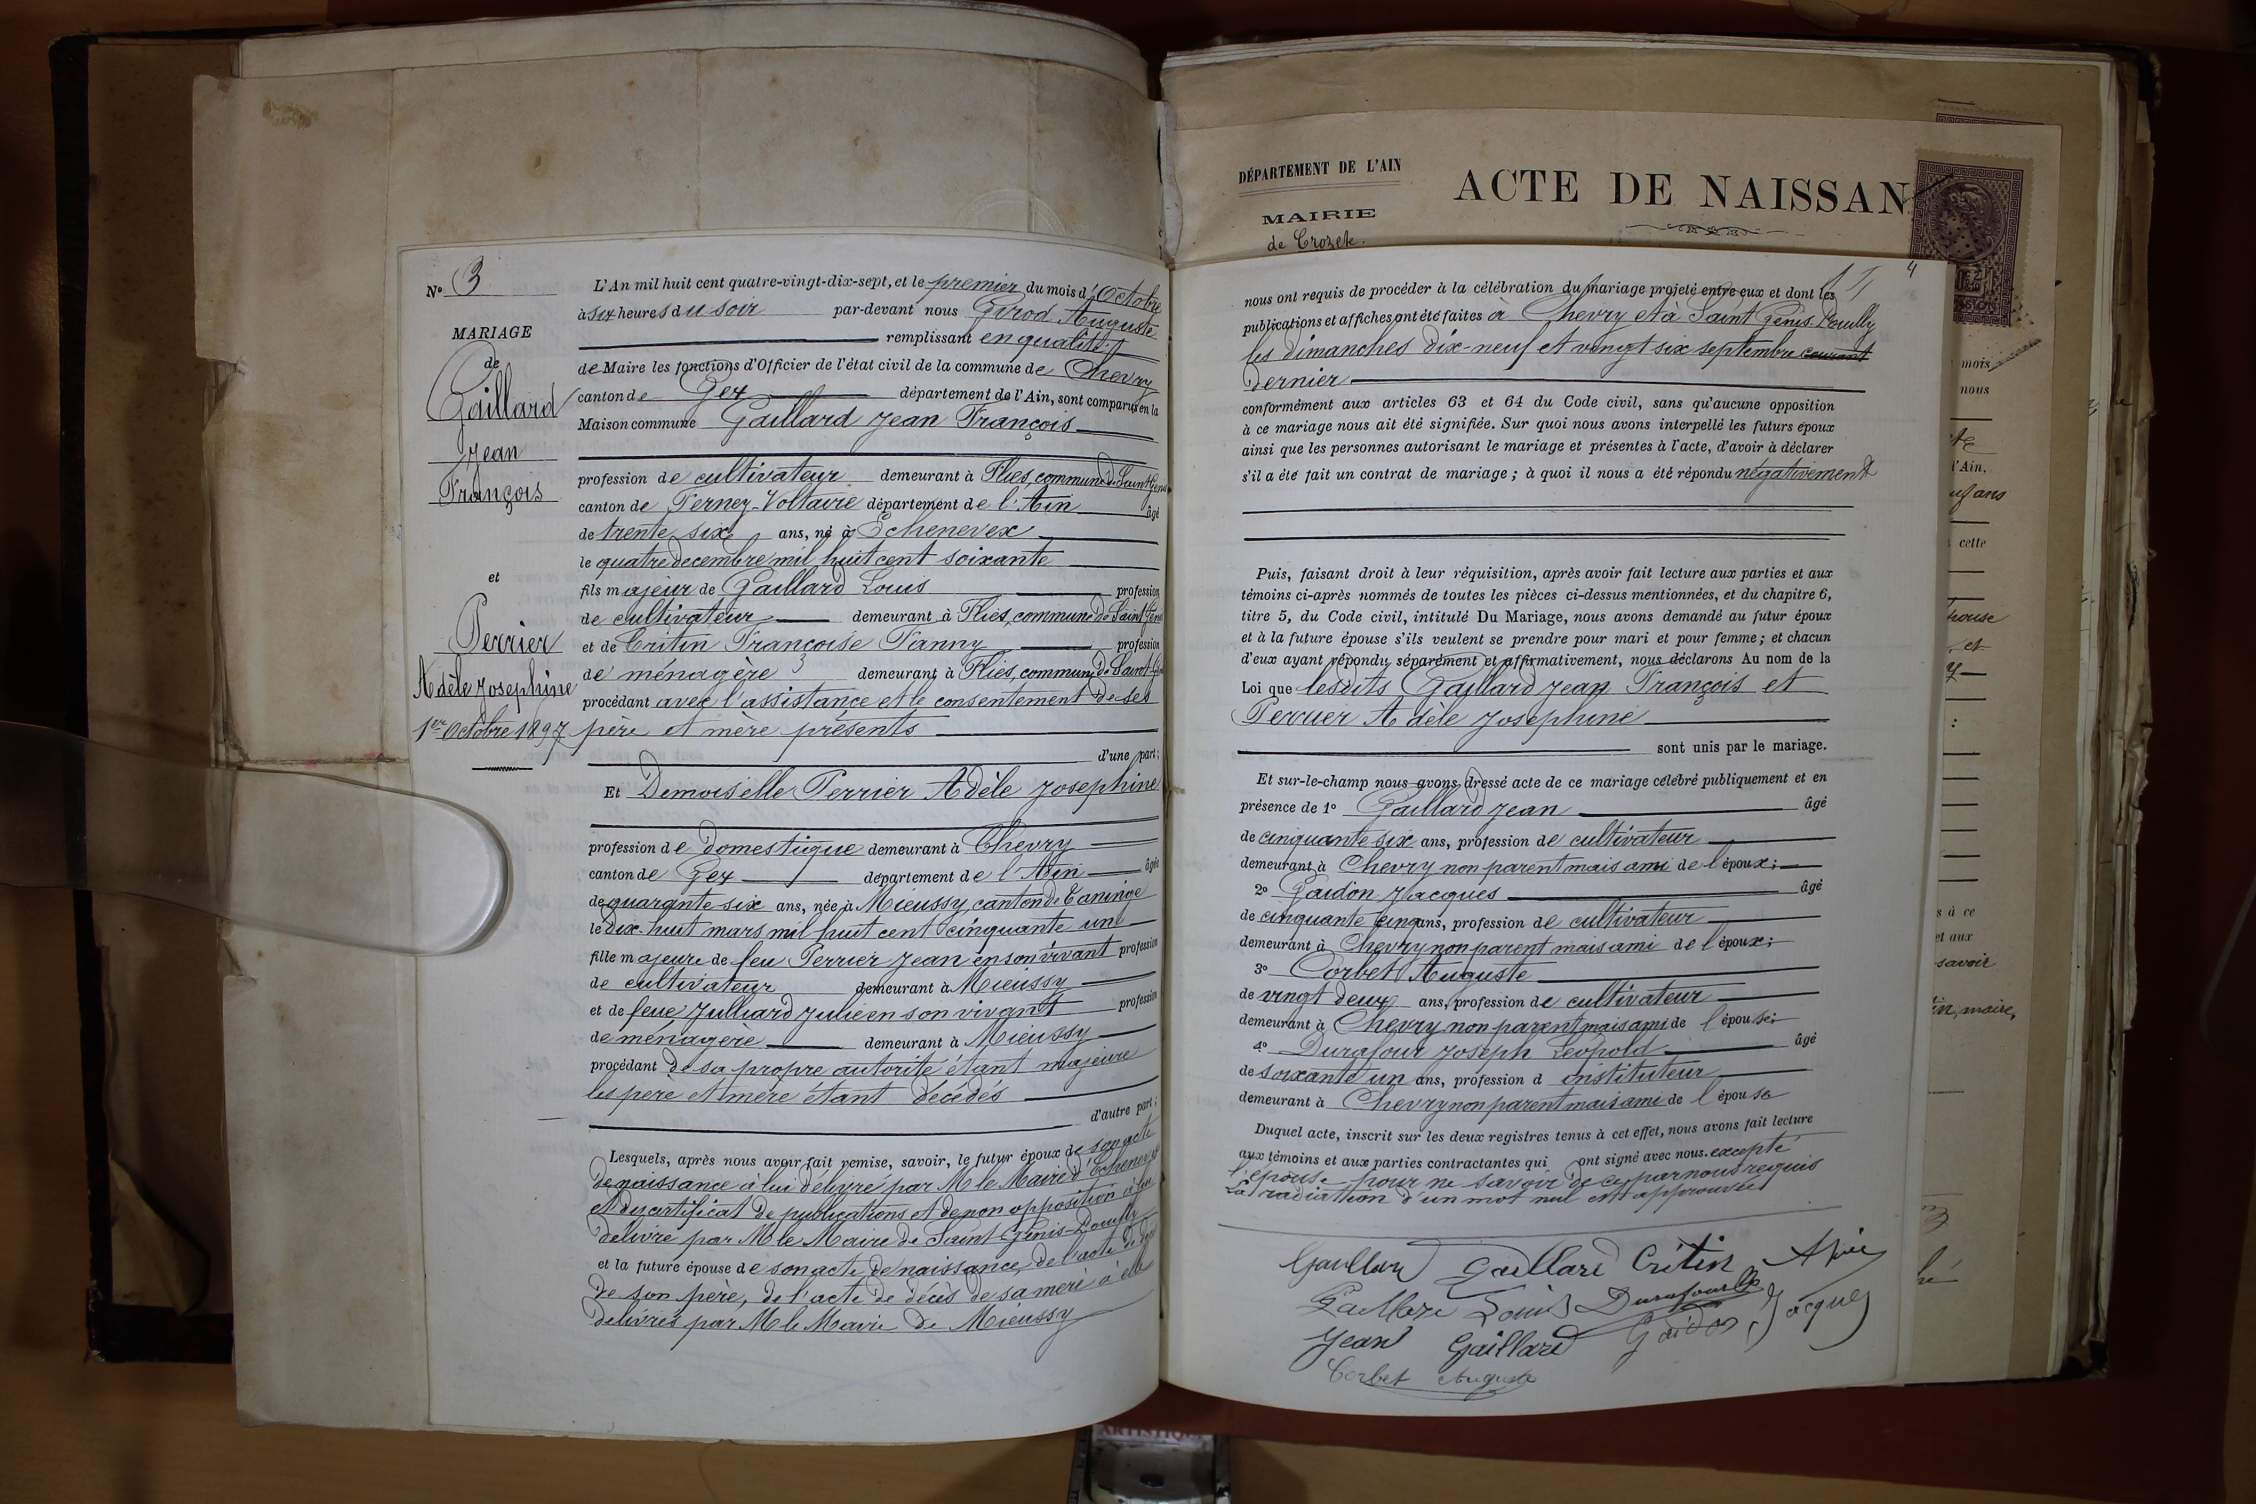 N° 3
MARIAGE
de
Gaillard
Jean
François
et
Perrier
Adèle Josephine
1er Octobre 1897
L'An mil huit cent quatre-vingt-dix-sept, et le premier du mois d'Octobre
à six heures du soir par-devant nous Girod Auguste
remplissant en qualité
de Maire les fonctions d'Officier de l'état civil de la commune de Chevry
canton de Gex département de l'Ain, sont comparus en la
Maison commune Gaillard Jean François
profession de cultivateur demeurant à Flies, commune de Saint Genis
canton de Ferney-Voltaire département de l'Ain âgé
de trente six ans, né à Echenevex
le quatre decembre mil huit cent soixante
fils majeur de Gaillard Louis profession
de cultivateur demeurant à Flies, commune de Saint Genis
et de Critin Françoise Fanny profession
de ménagère demeurant à Flies, commune de Saint Genis
procédant avec l'assistance et le consentement de ses
père et mère présents
d'une part;
Et Demoiselle Perrier Adèle Josephine
profession de domestique demeurant à Chevry
canton de Gex département de l'Ain âgée
de quarante-six ans, née à Mieussy, canton de Taninge
le dix-huit mars mil huit cent cinquante un
fille majeure de feu Perrier Jean en son vivant profession
de cultivateur demeurant à Mieussy
et de feue Julliard Julie en son vivant profession
de ménagère demeurant à Mieussy
procédant de sa propre autorité étant majeure
les père et mère étant décédés
d'autre part;
Lesquels, après nous avoir fait remise, savoir, le futur époux de son acte
de naissance à lui délivré par M le Maire d'Echenevex
et du certificat de publications et de non opposition à lui
délivré par M le Maire de Saint Genis-Pouilly
et la future épouse de son acte de naissance, de l'acte de décès
de son père, de l'acte de décès de sa mère à elle
délivrés par M le Maire de Mieussy
DÉPARTEMENT DE L'AIN
MAIRIE
de Crozet.
ACTE DE NAISSAN
4
nous ont requis de procéder à la célébration du mariage projeté entre eux et dont les
publications et affiches ont été faites à Chevry et à Saint Genis Pouilly
les dimanches dix-neuf et vingt six septembre courant
dernier
conformément aux articles 63 et 64 du Code civil, sans qu'aucune opposition
à ce mariage nous ait été signifiée. Sur quoi nous avons interpellé les futurs époux
ainsi que les personnes autorisant le mariage et présentes à l'acte, d'avoir à déclarer
s'il a été fait un contrat de mariage ; à quoi il nous a été répondu négativement
Puis, faisant droit à leur réquisition, après avoir fait lecture aux parties et aux
témoins ci-après nommés de toutes les pièces ci-dessus mentionnées, et du chapitre 6,
titre 5, du Code civil, intitulé Du Mariage, nous avons demandé au futur époux
et à la future épouse s'ils veulent se prendre pour mari et pour femme ; et chacun
d'eux ayant répondu séparément et affirmativement, nous déclarons Au nom de la
Loi que lesdits Gaillard Jean François et
Perrier Adèle Josephine
sont unis par le mariage.
Et sur-le-champ nous avons dressé acte de ce mariage célébré publiquement et en
présence de 1° Gaillard Jean âgé
de cinquante six ans, profession de cultivateur
demeurant à Chevry non parent mais ami de l'époux;
2° Gaidon Jacques âgé
de cinquante cinq ans, profession de cultivateur
demeurant à Chevry non parent mais ami de l'époux;
3° Corbet Auguste
de vingt deux ans, profession de cultivateur
demeurant à Chevry non parent mais ami de l'épouse;
4° Durafour Joseph Léopold âgé
de soixante un ans, profession d instituteur
demeurant à Chevry non parent mais ami de l'épouse
Duquel acte, inscrit sur les deux registres tenus à cet effet, nous avons fait lecture
aux témoins et aux parties contractantes qui ont signé avec nous. excepté
l'épouse pour ne savoir de ce par nous requis
La radiation d'un mot nul est approuvée
Gaillard Gaillard Critin
Gaillard Louis Durafour
Jean Gaillard Gaidon Jacques
Corbet Auguste
mois
nous
l'Ain,
cette
et
s à ce
et aux
savoir
maire,